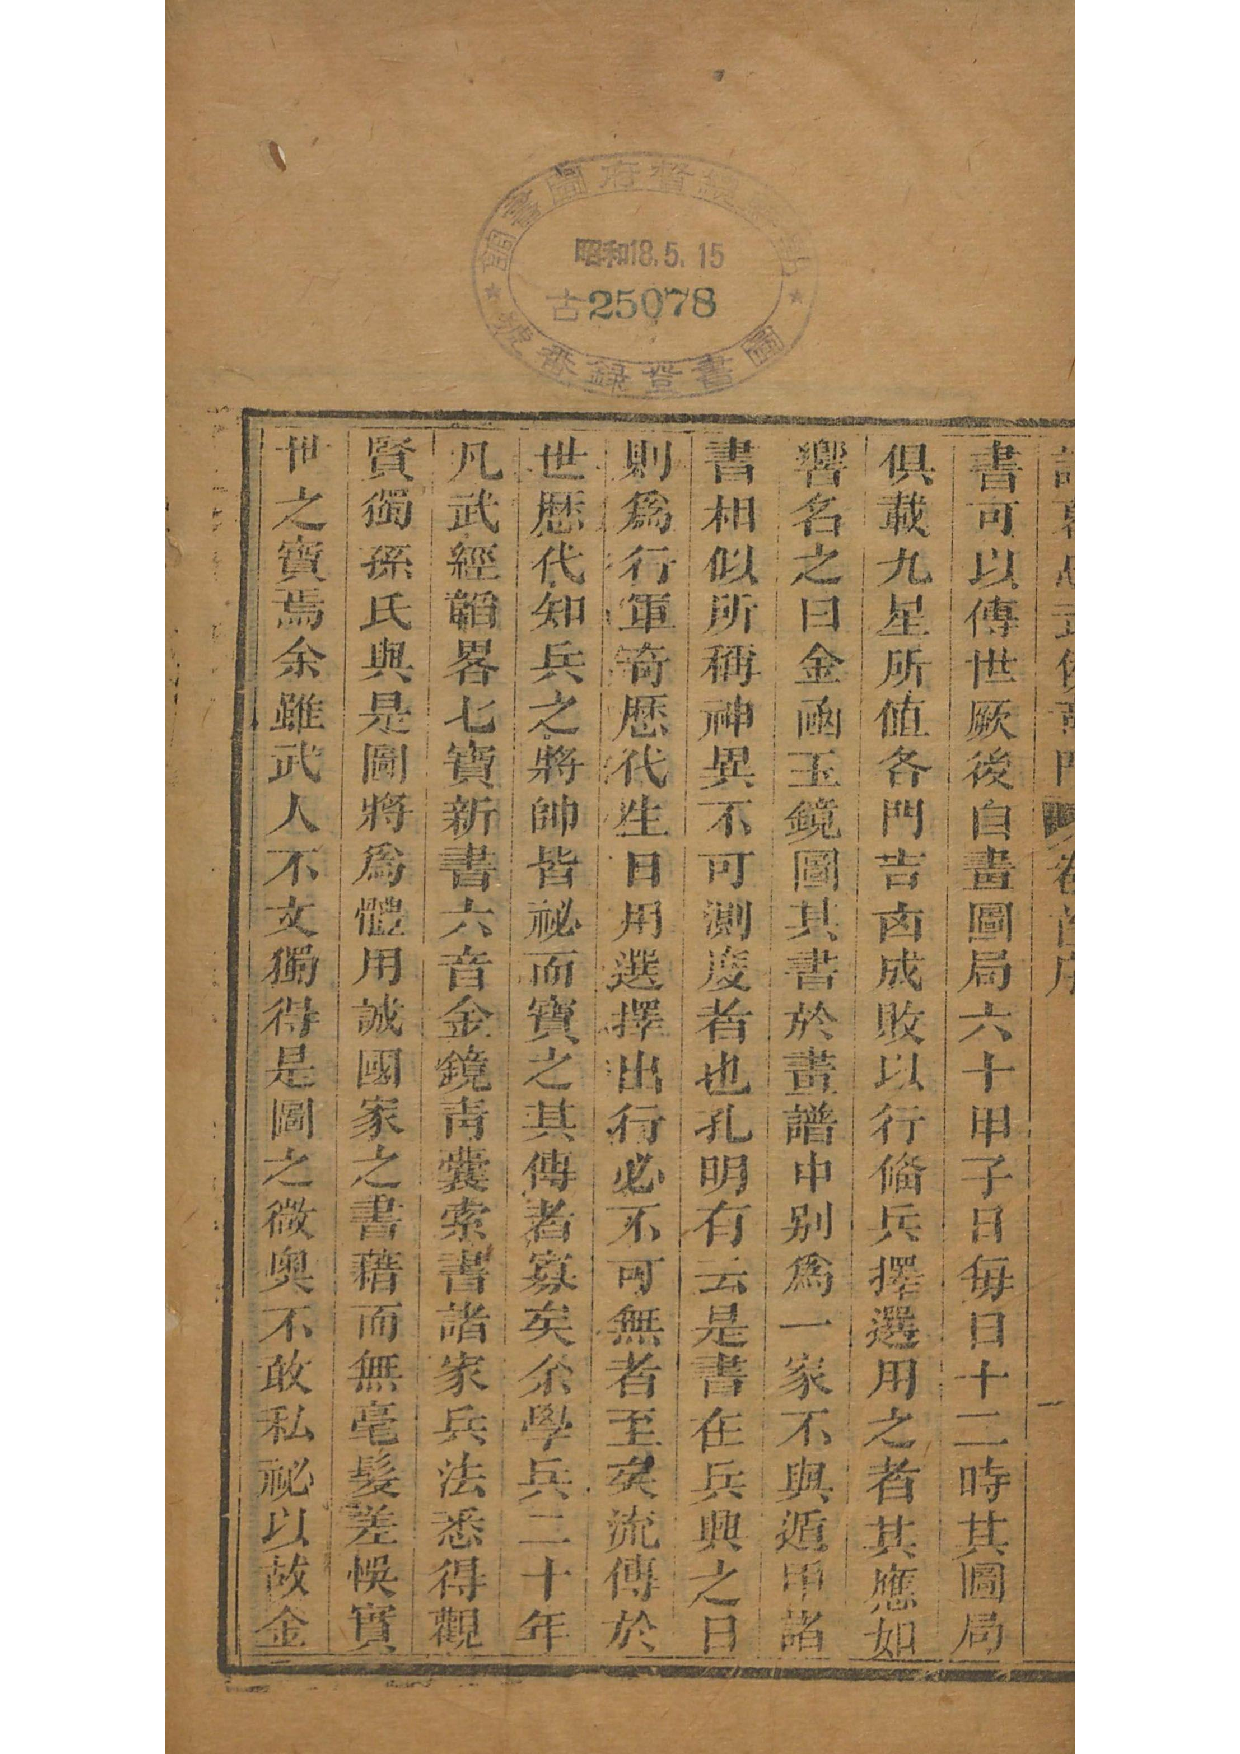 朝鮮總督府圖書館
昭和18.5.15
古25078
圖書登錄番號
書可以傳世厥後自畫圖局六十甲子日每日十二時其圖局
俱載九星所值各門吉凶成敗以行偹兵擇選用之者其應如
響名之曰金函玉鏡圖其書於畫譜中別爲一家不與遁甲諸
書相似所稱神異不可測度者也孔明有云是書在兵興之日
則爲行軍竒歷代生日用選擇出行必不可無者至矣流傳於
世歷代知兵之將帥皆祕而寶之其傳者寡矣余學兵二十年
凡武經韜畧七寶新書六音金鏡靑囊索書諸家兵法悉得觀
賢獨孫氏與是圖將爲體用誠國家之書藉而無毫髮差悞實
世之寶焉余雖武人不文獨得是圖之微奧不敢私祕以故金